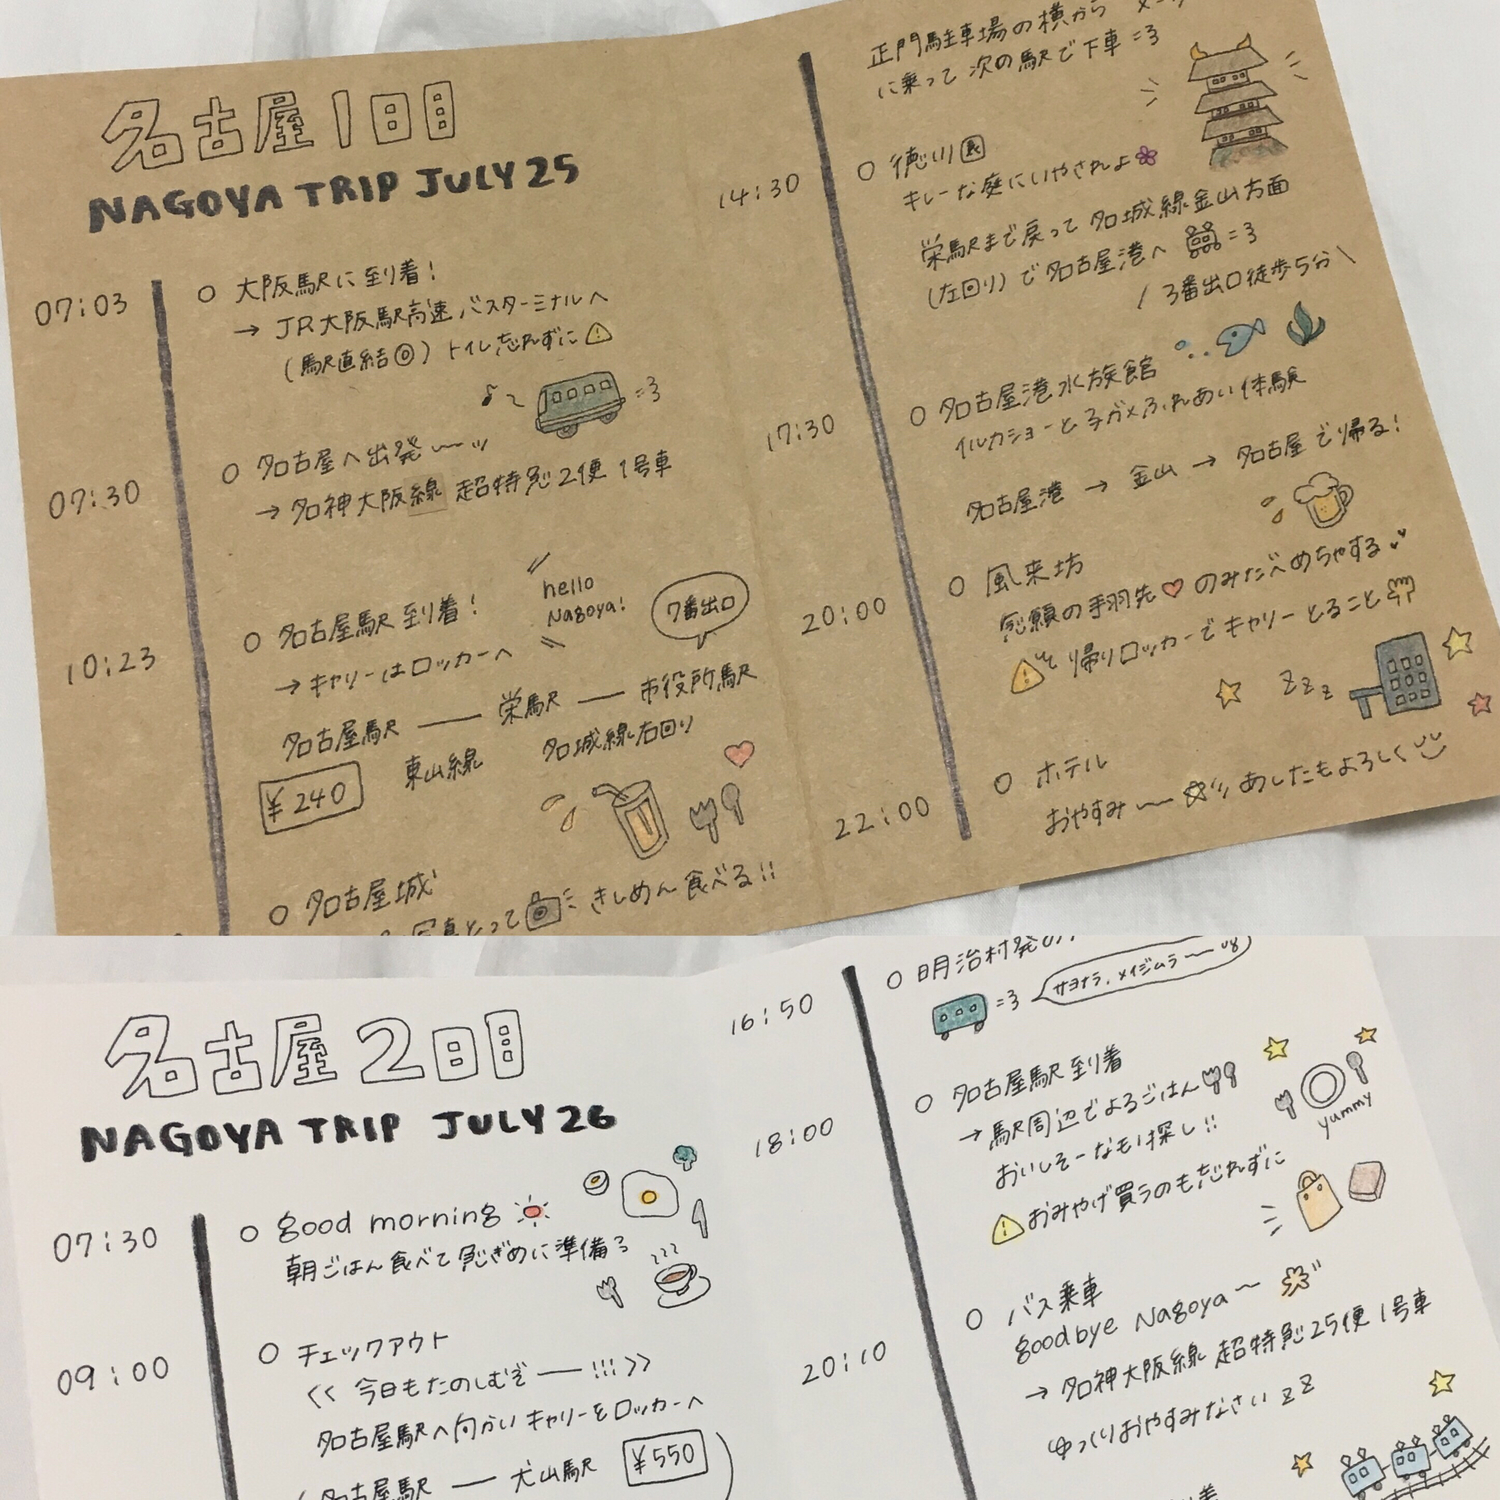 名古屋1日目
NAGOYA TRIP JULY 25
07:03
○ 大阪駅に到着!
→ JR大阪駅高速バスターミナルへ
(駅直結◎) トイレ忘れずに⚠
07:30
○ 名古屋へ出発〜〜ッ
→ 名神大阪線 超特急2便 1号車
10:23
○ 名古屋駅到着!
hello
Nagoya!
7番出口
→ キャリーはロッカーへ
名古屋駅 — 栄駅 — 市役所駅
東山線 名城線右回り
¥240
○ 名古屋城
写真とって きしめん食べる!!
正門駐車場の横から
に乗って次の駅で下車
14:30
○ 徳川園
キレーな庭にいやされよ
栄駅まで戻って 名城線金山方面
(左回り)で名古屋港へ
/ 3番出口徒歩5分 \
17:30
○ 名古屋港水族館
イルカショーと子ガメふれあい体験
名古屋港 → 金山 → 名古屋で帰る!
20:00
○ 風来坊
念願の手羽先♡のみたべめちゃする
⚠帰りロッカーでキャリーとること
zzz
22:00
○ ホテル
おやすみ〜〜☆ あしたもよろしく
名古屋2日目
NAGOYA TRIP JULY 26
07:30
○ good morning
朝ごはん食べて急ぎめに準備
09:00
○ チェックアウト
<< 今日もたのしむぞ—!!! >>
名古屋駅へ向かいキャリーをロッカーへ
(名古屋駅 — 犬山駅 ¥550 )
16:50
○ 明治村発の
サヨナラ、メイジムラ〜〜
18:00
○ 名古屋駅到着
→ 駅周辺でよるごはん
おいしそーなもん探し!!
yummy
⚠おみやげ買うのも忘れずに
20:10
○ バス乗車
goodbye Nagoya〜
→ 名神大阪線 超特急25便 1号車
ゆっくりおやすみなさい zz